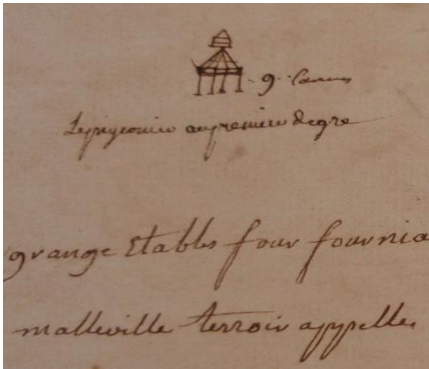 9. Cannes
Le pigeonnier au premier degre
grange Etables four fournia
malleville terroir appelle